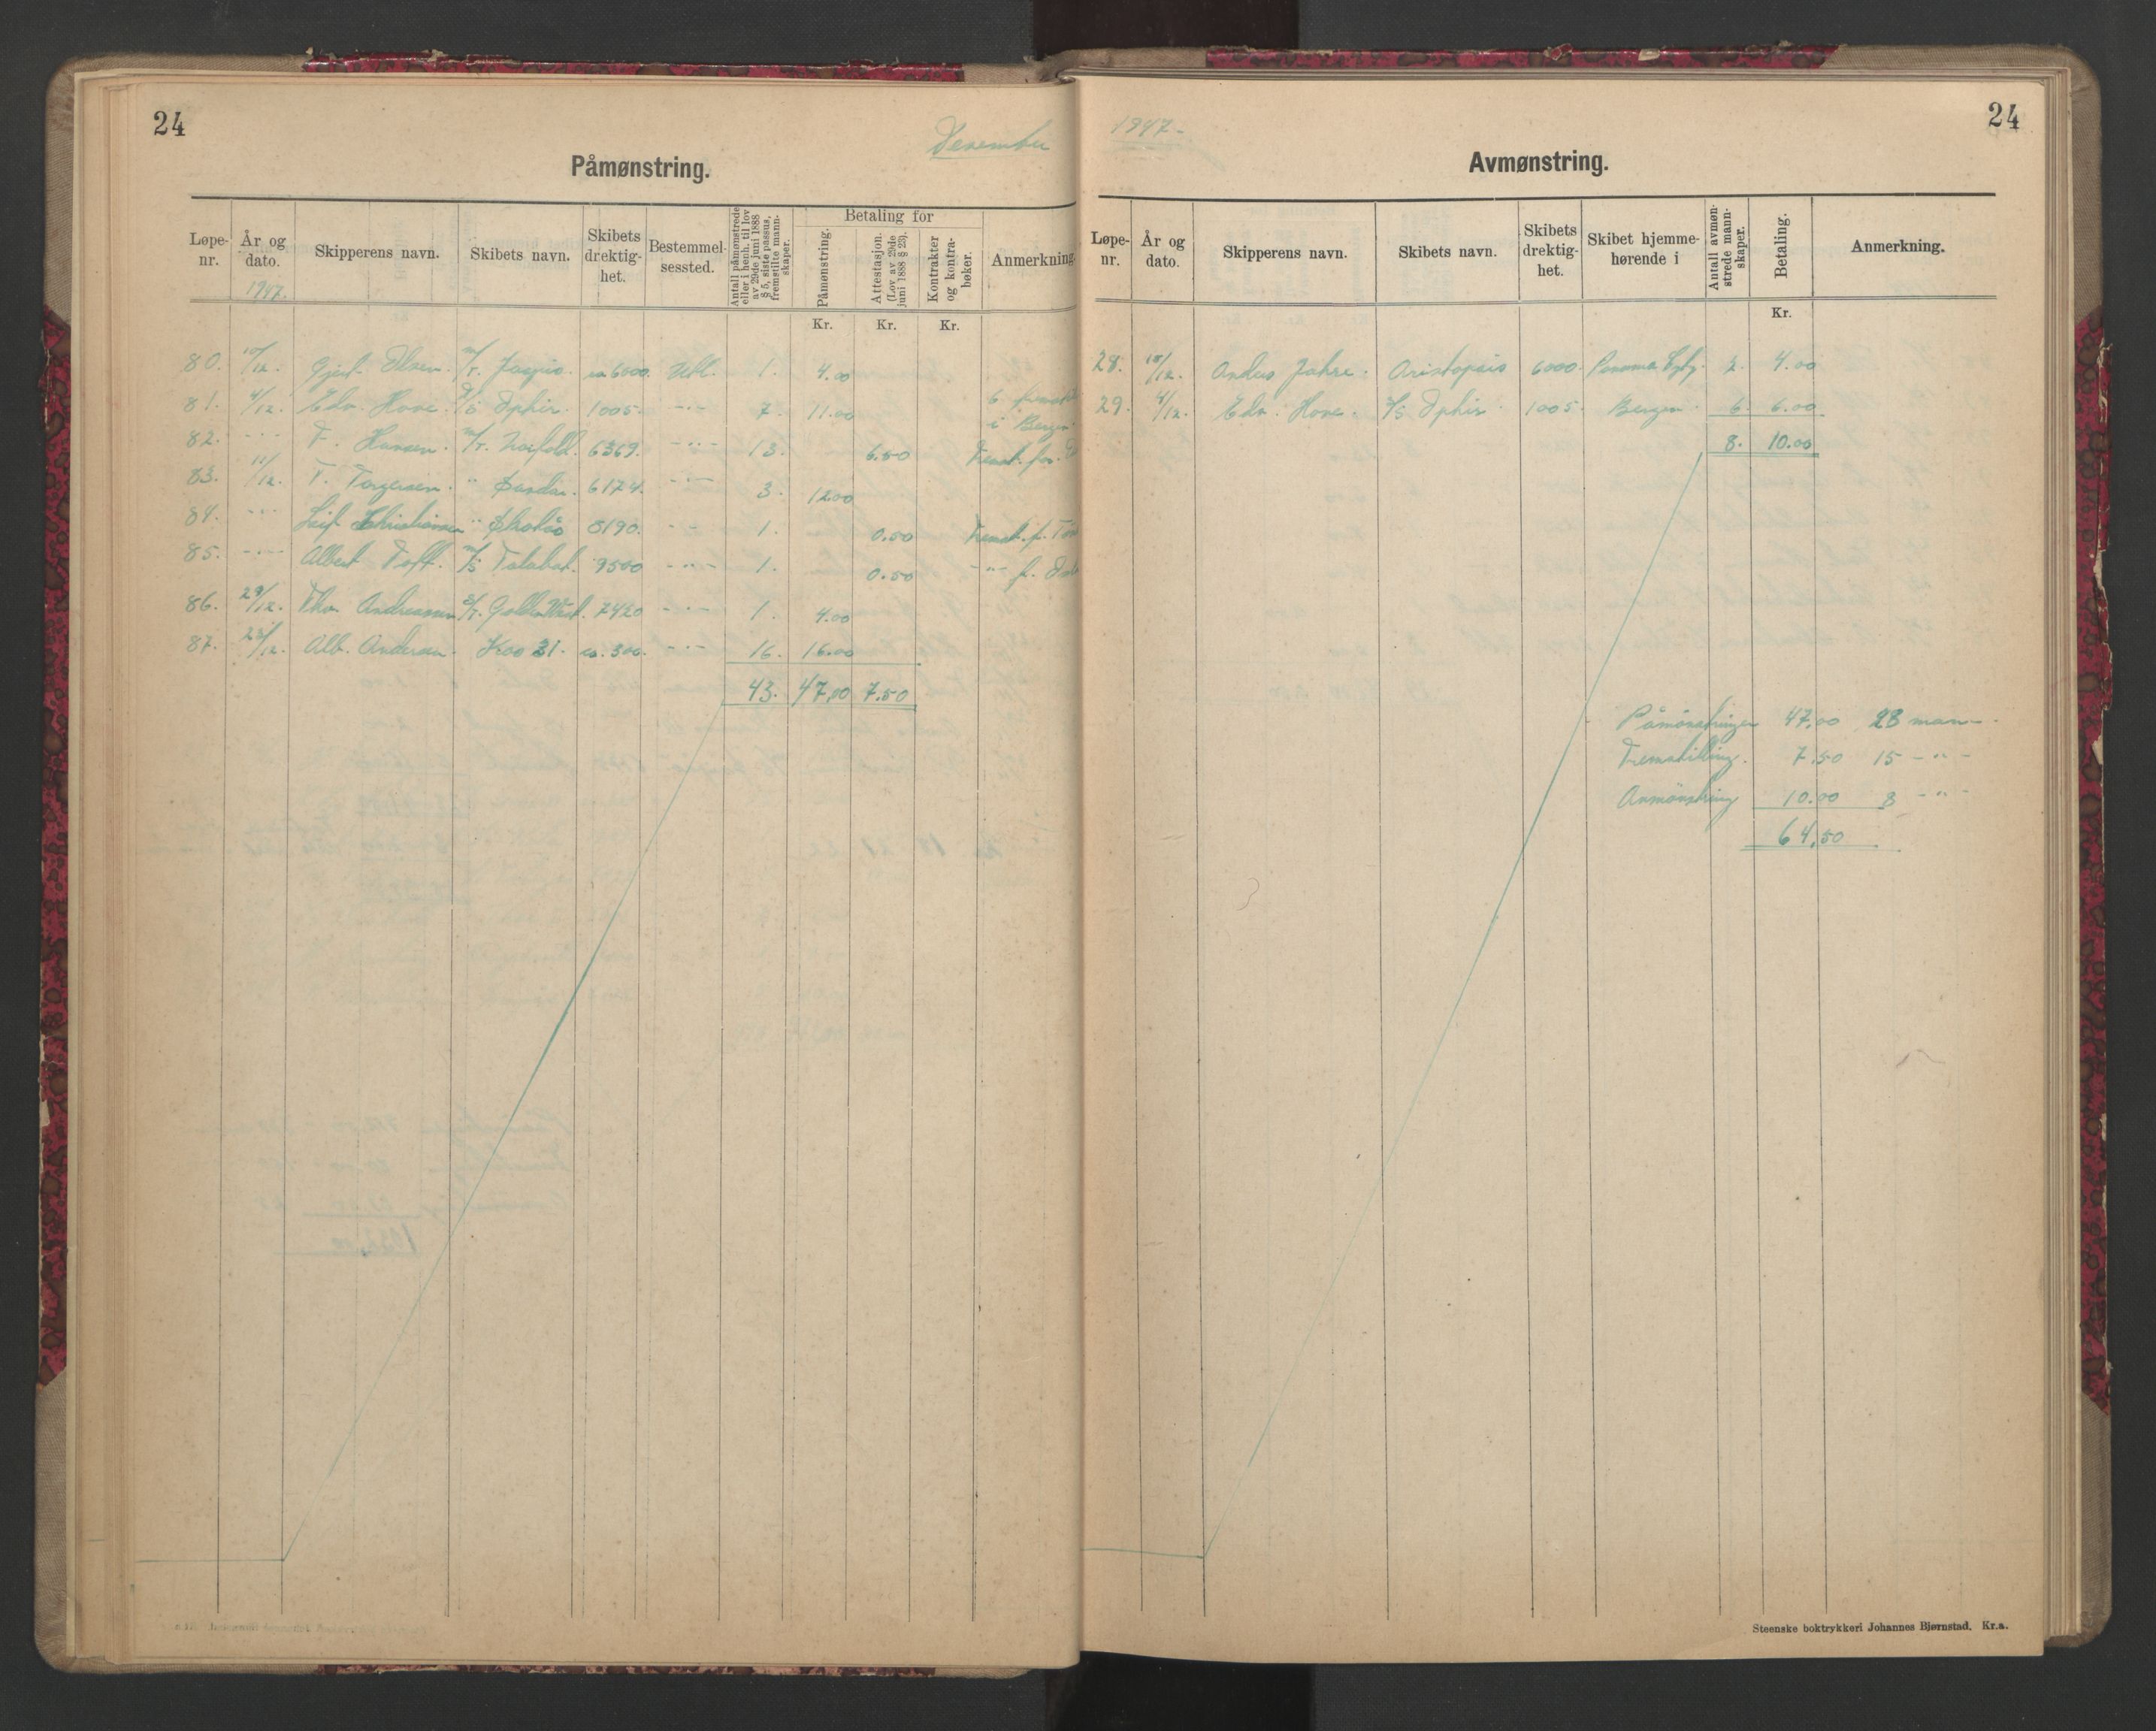 24
Desember
Påmønstring.
Løpe-nr. År og dato. Skipperens navn. Skibets navn. Skibets drektig-het. Bestemmel-sessted. Antall påmønstrede eller i henh. til lov av 29de juni 1888 § 5, siste passus, fremstilte mann-skaper. Betaling for Påmønstring. Attestasjon. (Lov av 29de juni 1888 § 23). Kontrakter og kontra-bøker. Anmerkning.
1947.
Kr. Kr. Kr.
80. /12. Olsen. m/T. ca 6000. Utl. 1. 4.00
81. 4/12. Edv. Hove. D/S Ophir. 1005. -"- 7. 11.00 6
i Bergen.
82. -"- F. Hansen. m/T. 6369. -"- 13. 6.50 Fremst. for
83. 11/12. T. Torgersen. " Sandar. 6174. -"- 3. 12.00
84. -"- Leif Christiansen " 8190. -"- 1. 0.50 Fremst. f.
85. -"- Albert Toft. m/S Talabot. 9500 -"- 1. 0.50 -"- f.
86. 29/12. Thv. Andreassen S/T. Golden West. 7420 -"- 1. 4.00
87. 23/12. Alb. Andersen. Kos 31. ca. 300. -"- 16. 16.00
43. 47,00 7.50
1947.-
24
Avmønstring.
Løpe-nr. År og dato. Skipperens navn. Skibets navn. Skibets drektig-het. Skibet hjemme-hørende i Antall avmøn-strede mann-skaper. Betaling. Anmerkning.
Kr.
28. 10/12. Anders Jahre. Aristopais 6000. Panama 2. 4.00
29. 4/12. Edv. Hove. D/S Ophir. 1005. Bergen. 6. 6.00
8. 10.00
Påmønstringer 47,00 28 mann.
Fremstilling. 7.50 15 -"-
Avmønstring 10.00 8 -"-
64,50
Steenske boktrykkeri Johannes Bjørnstad. Kr.a.